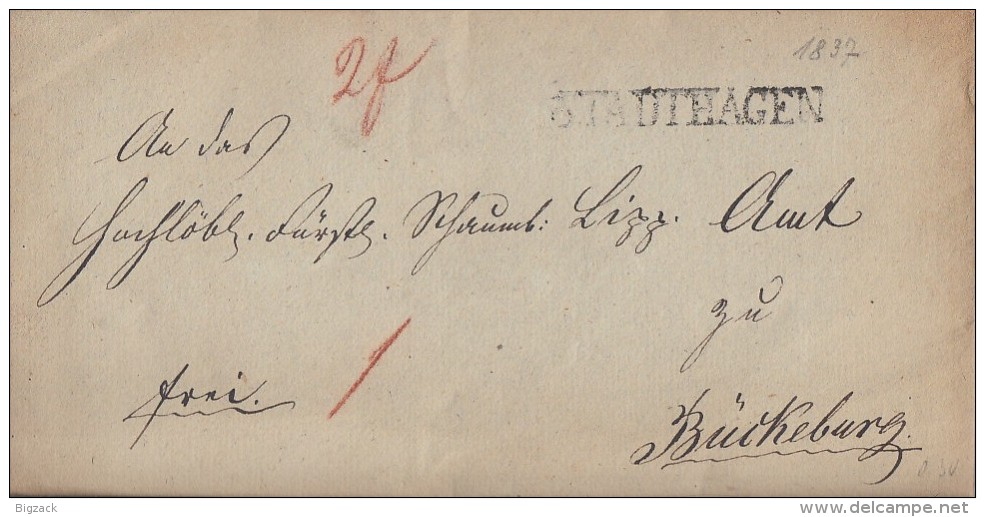 1837
STADTHAGEN
An das
Hochlöbl. Fürstl. Schaumb: Lipp. Amt
zu
frei.
Bückeburg.
Bigzack
www.delcampe.net